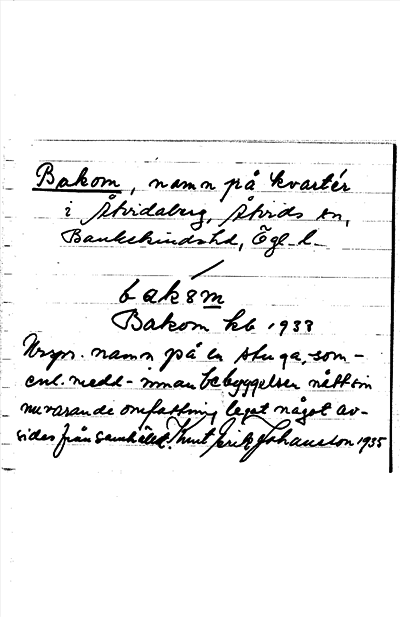 Bakom, namn på kvartér
i Åtvidaberg, Åtvids sn,
Bankekinds hd, Ögl. l.
bak8m
Bakom kb 1933
Urspr. namn på en stuga, som -
enl. medd - innan bebyggelsen nått sin
nuvarande omfattning legat något av-
sides från samhället. Knut Erik Johansson 1935